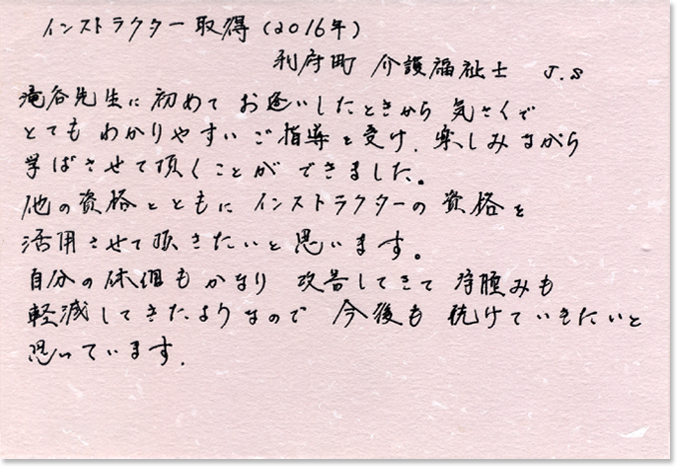 インストラクター取得(2016年)
利府町 介護福祉士 J.S
滝谷先生に初めてお逢いしたときから 気さくで
とても わかりやすい ご指導を受け、楽しみながら
学ばさせて頂くことが できました。
他の資格とともに インストラクターの 資格を
活用させて頂きたいと思います。
自分の体調も かなり 改善してきて 浮腫みも
軽減してきたようなので 今後も 続けていきたいと
思っています.